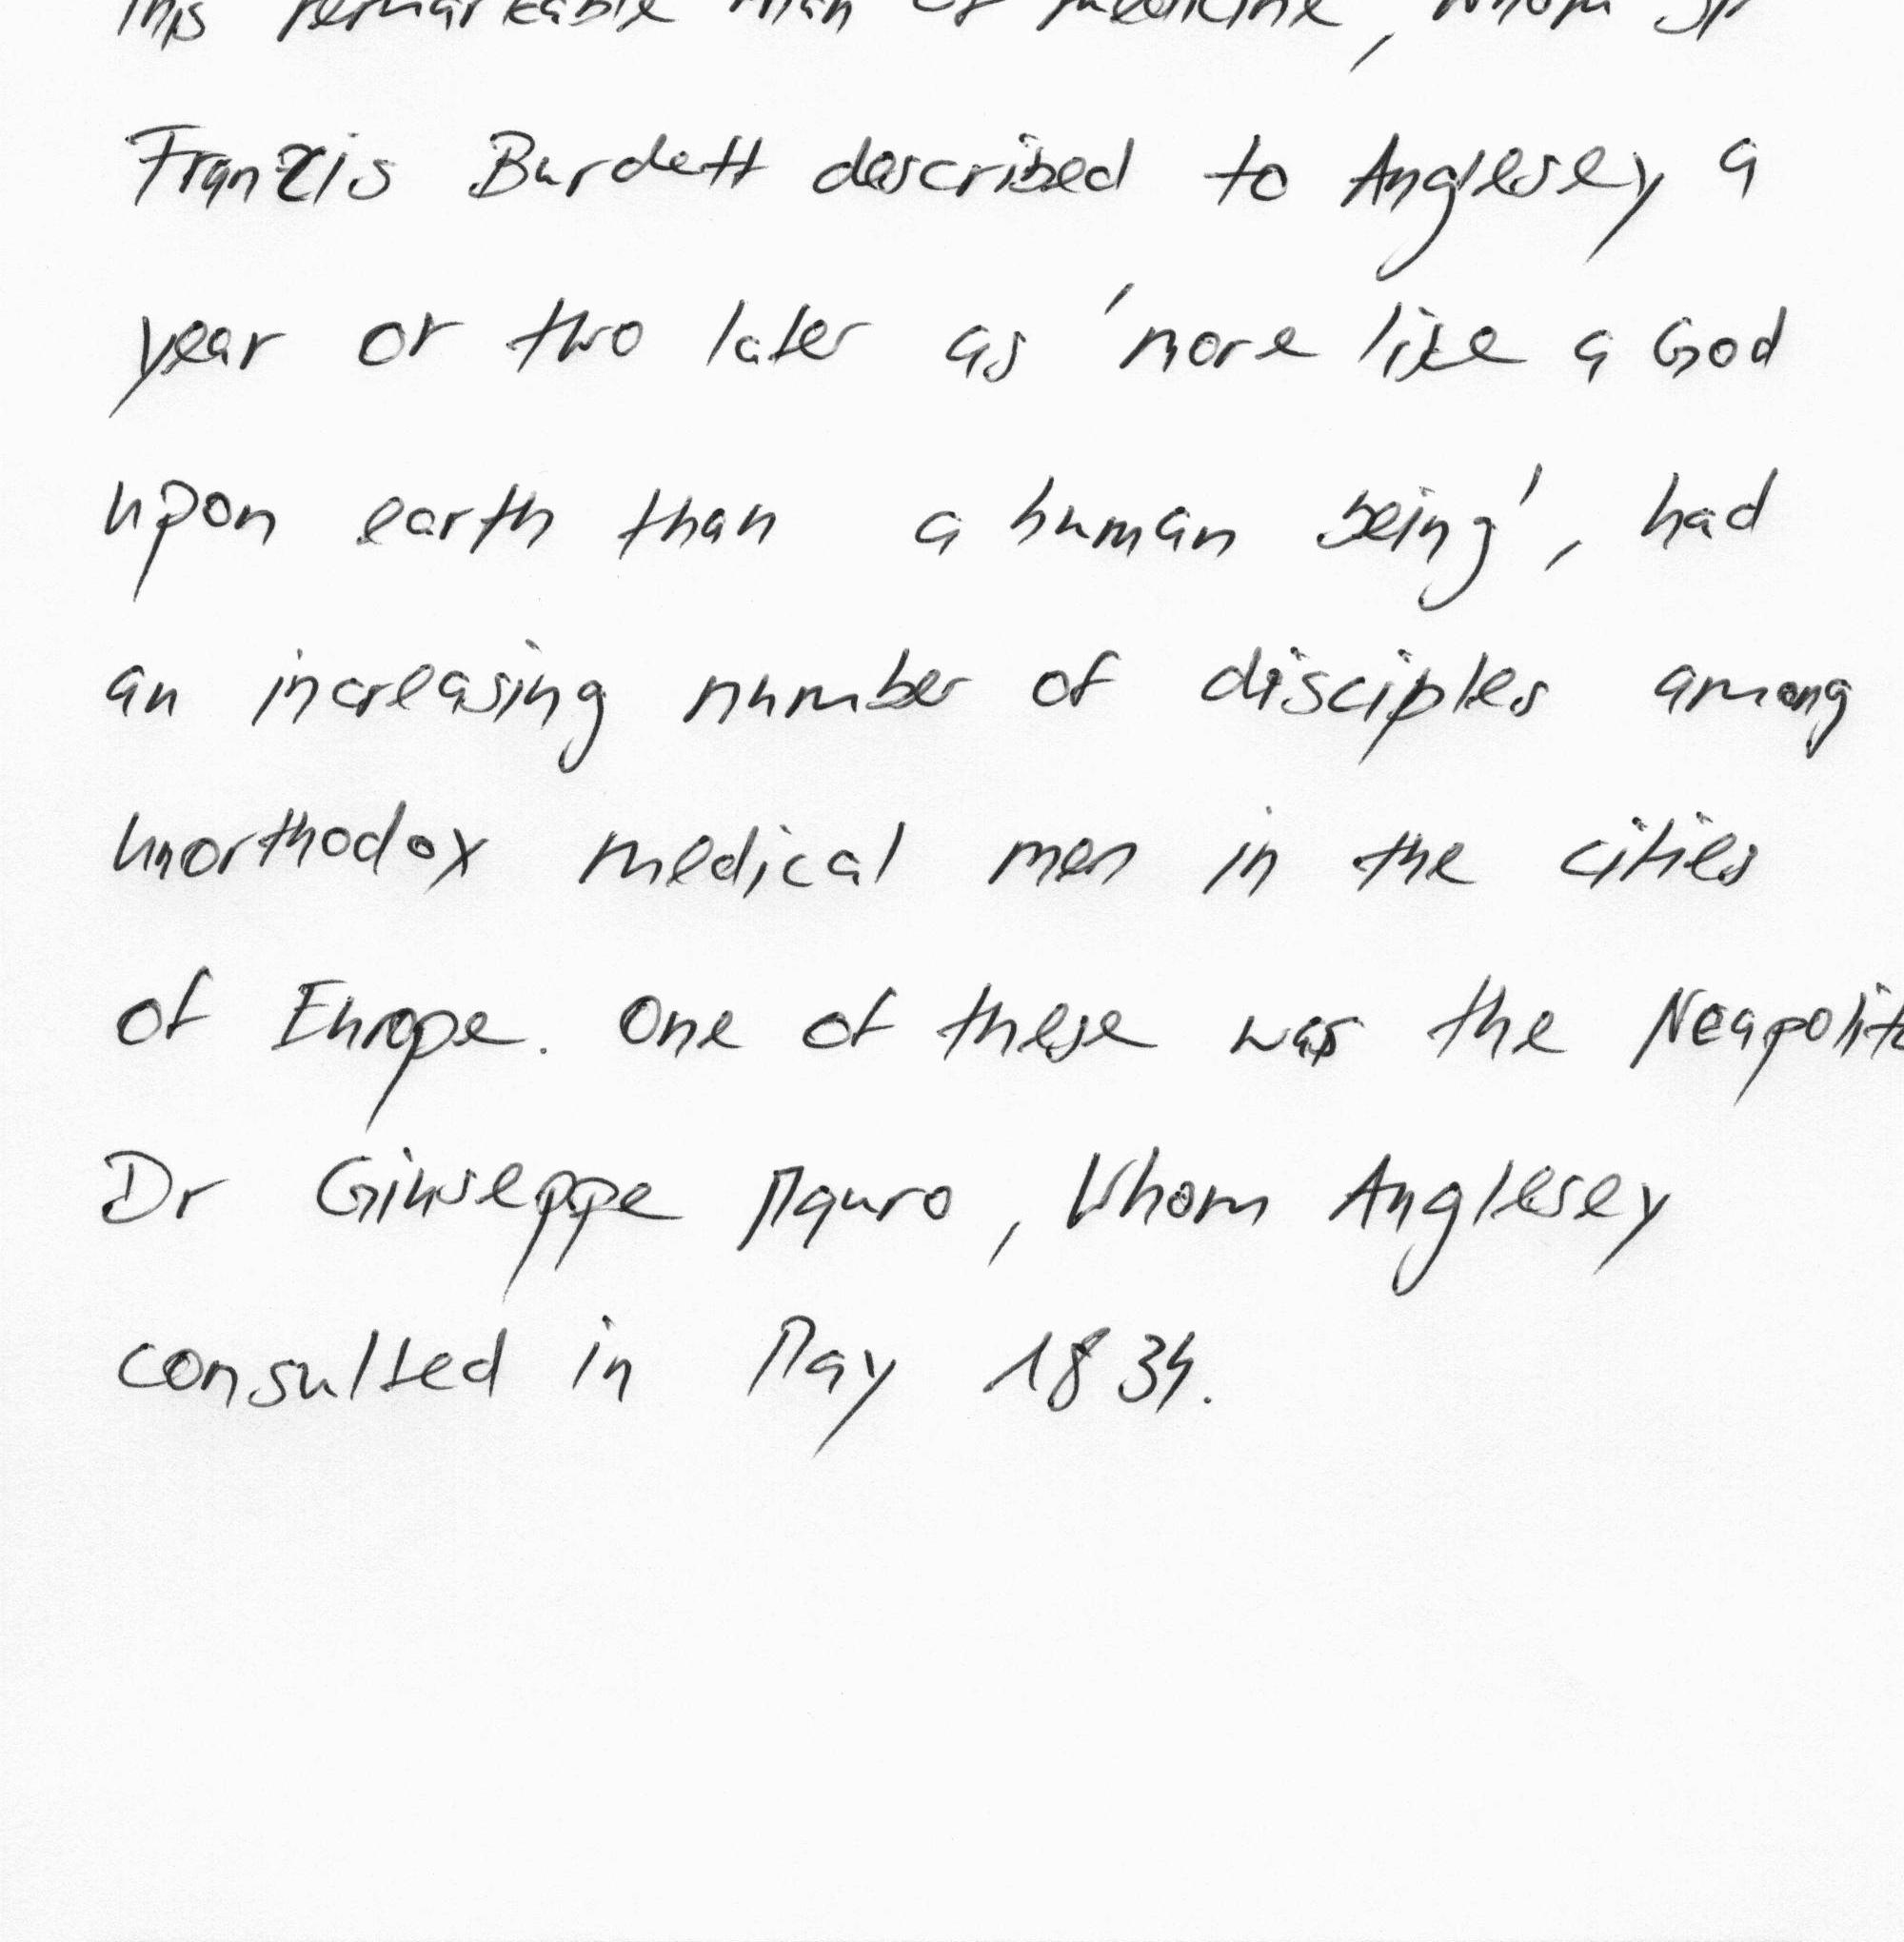 This remarkable man of medicine, whom Sir
Francis Burdett described to Anglesey a
year or two later as 'more like a God
upon earth than a human being', had
an increasing number of disciples among
unorthodox medical men in the cities
of Europe. One of these was the Neapolita
Dr Giuseppe Mauro, whom Anglesey
consulted in May 1834.